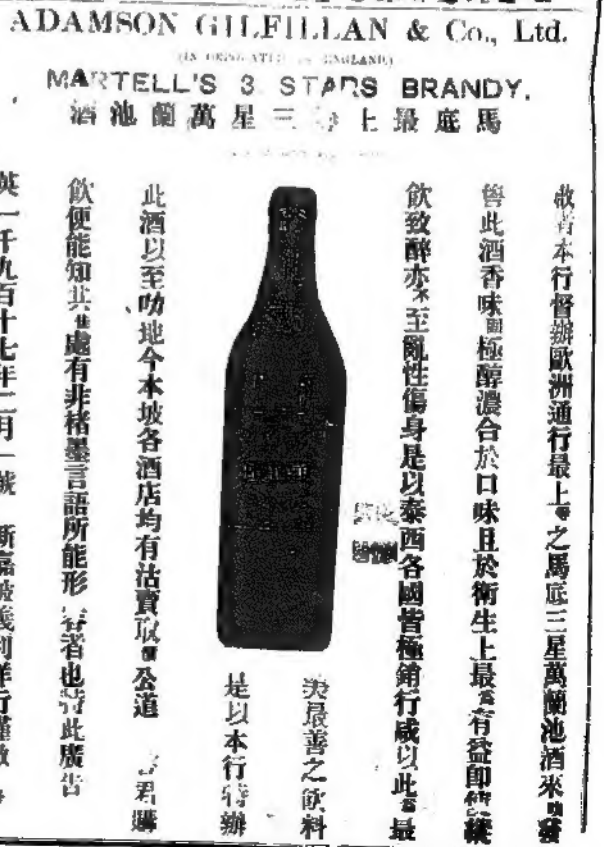 ADAMSON GILFILLAN & Co., Ltd.
MARTELL'S 3 STARS BRANDY.
馬底最上三星萬蘭池酒
啟者本行督辦歐洲通行最上之馬底三星萬蘭池酒來發
此酒香味極醇濃合於口味且於衛生上最有益即縱
飲致醉亦不至亂性傷身是以泰西各國皆極銷行咸以此最
美最善之飲料
是以本行特辦
此酒以至叻地今本坡各酒店均有沽賣取公道君購
飲便能知其處有非楮墨言語所能形容者也特此廣告
英一千九百十七年二月一號 新嘉坡義利洋行謹啟